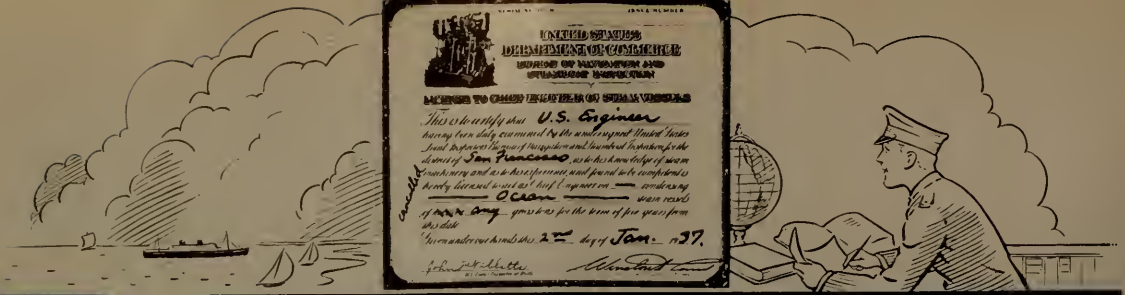 ISSUE NUMBER
UNITED STATES
DEPARTMENT OF COMMERCE
BUREAU OF NAVIGATION AND
STEAMBOAT INSPECTION
LICENSE TO CHIEF ENGINEER OF STEAM VESSELS
This is to certify that U.S. Engineer
having been duly examined by the undersigned United States
Local Inspectors Bureau of Navigation and Steamboat Inspection for the
district of San Francisco, as to his knowledge of steam
machinery and as to his experience, and found to be competent is
hereby licensed to act as Chief Engineer on condensing
Ocean steam vessels
of any gross tons for the term of five years from
this date
Given under our hands this 2nd day of Jan. 1937.
cancelled